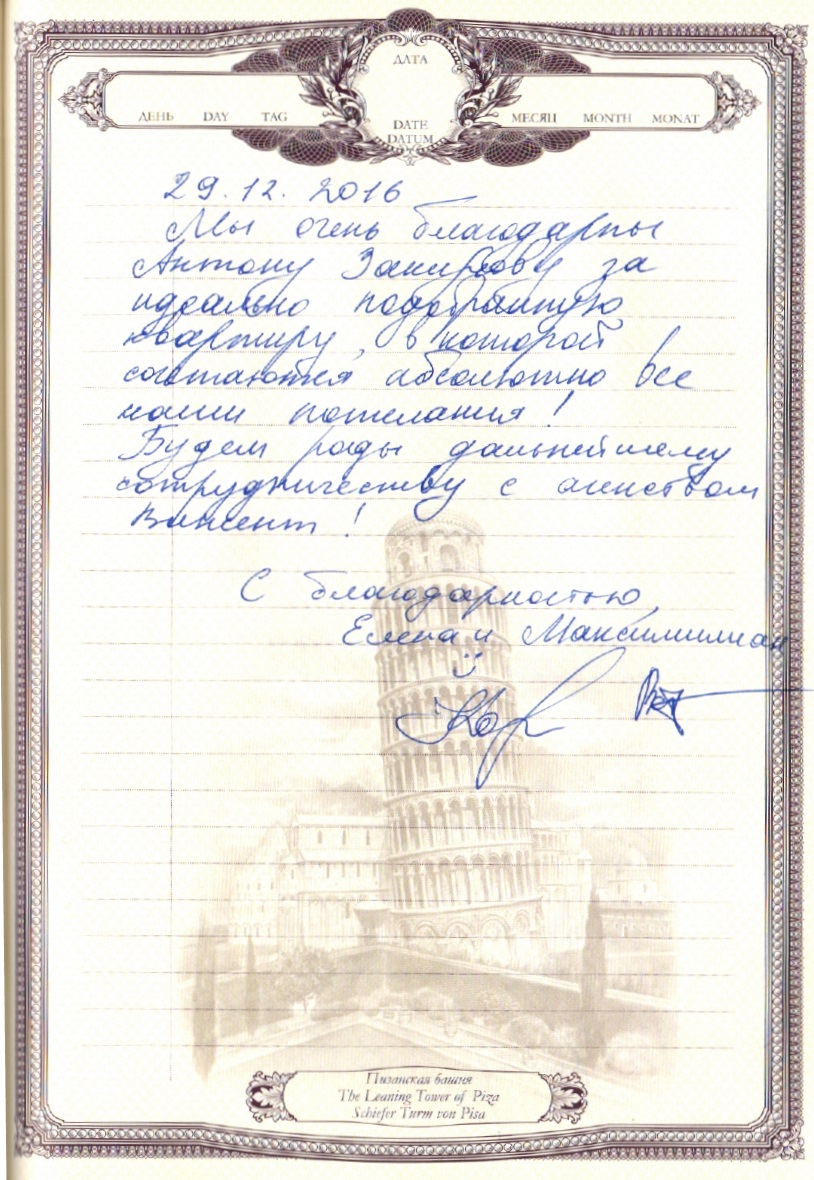 ДАТА
ДЕНЬ DAY TAG
DATE
DATUM
МЕСЯЦ MONTH MONAT
29.12.2016
Мы очень благодарны
Антону Закирову за
идеально подобранную
квартиру, в которой
сочетаются абсолютно все
наши пожелания!
Будем рады дальнейшему
сотрудничеству с агенством
Винсент!
С благодарностью,
Елена и Максимилиан
Пизанская башня
The Leaning Tower of Piza
Schiefer Turm von Pisa